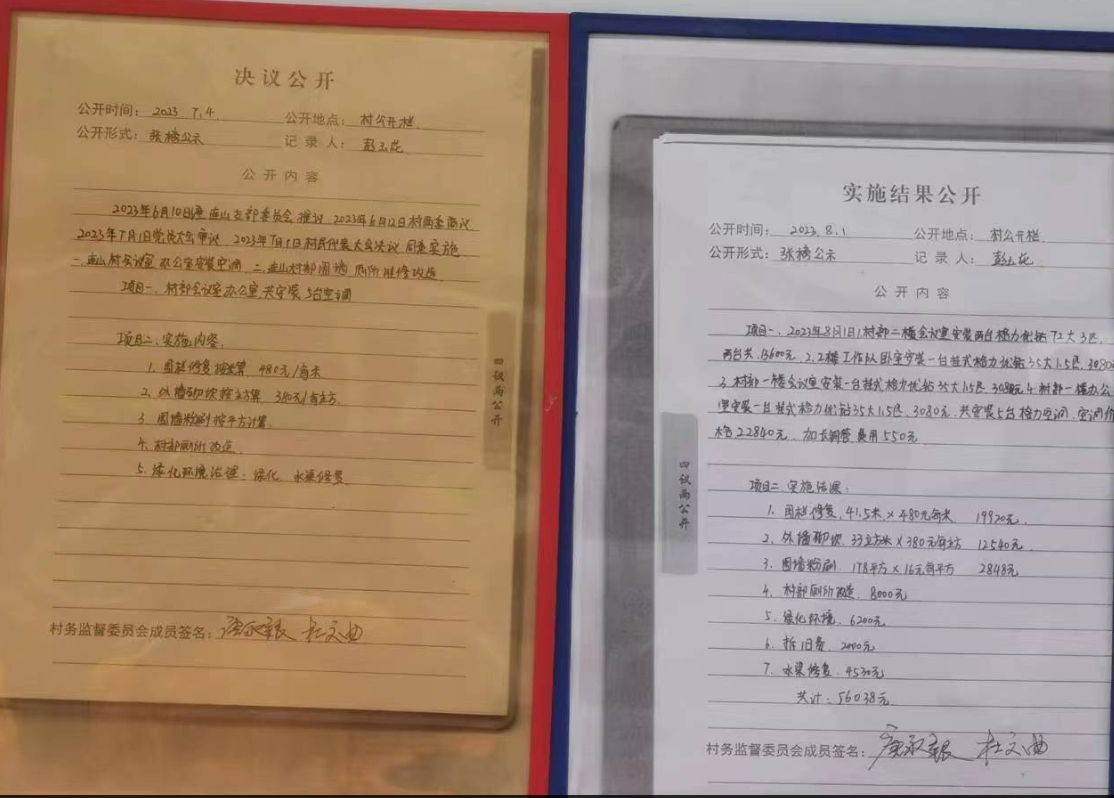 决议公开
公开时间: 2023 7.4 公开地点: 村公开栏
公开形式: 张榜公示 记录人: 彭玉花
公开内容
2023年6月10日 连山支部委员会提议 2023年6月12日村两委商议
2023年7月1日党员大会审议 2023年7月1日村民代表大会决议 同意实施
一.连山村会议室 办公室安装空调 二.连山村部围墙 厕所维修改造
项目一、村部会议室办公室共安装5台空调
项目二、实施内容:
1. 围栏修复 480元/每米
2. 外墙砌坎按立方算, 380元/每立方
3 围墙粉刷按平方计算
4. 村部厕所改造
5. 绿化环境治理: 绿化 水渠修复
村务监督委员会成员签名:
四议两公开
实施结果公开
公开时间: 2023.8.1 公开地点: 村公开栏
公开形式: 张榜公示 记录人: 彭玉花
公开内容
项目一、2023年8月1日1.村部二楼会议室安装两台格力 72大3匹,
两台共.13600元. 2.2楼工作队卧室安装一台挂式格力 35大1.5匹. 3080
3.村部一楼会议室安装一台挂式格力 35大1.5匹. 3080元 4.村部一楼办公
室安装一台挂式格力 35大1.5匹、3080元. 共安装5台格力空调. 空调价
格22840元. 加长铜管费用550元
四议两公开
项目二 实施结果:
1. 围栏修复. 41.5米 × 480元每米 19920元.
2. 外墙砌坎 33立方米×380元每立方 12540元.
3. 围墙粉刷. 178平方×16元每平方 2848元
4. 村部厕所改造. 8000元
5. 绿化环境. 6200元
6. 拆旧费. 2000元
7. 水渠修复. 4530元
共计: 56038元.
村务监督委员会成员签名: